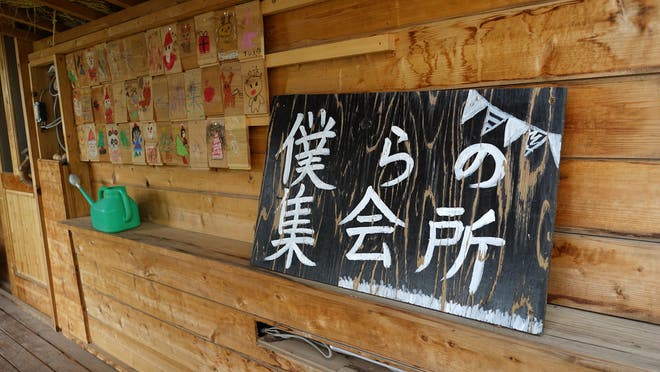 僕らの
集会所